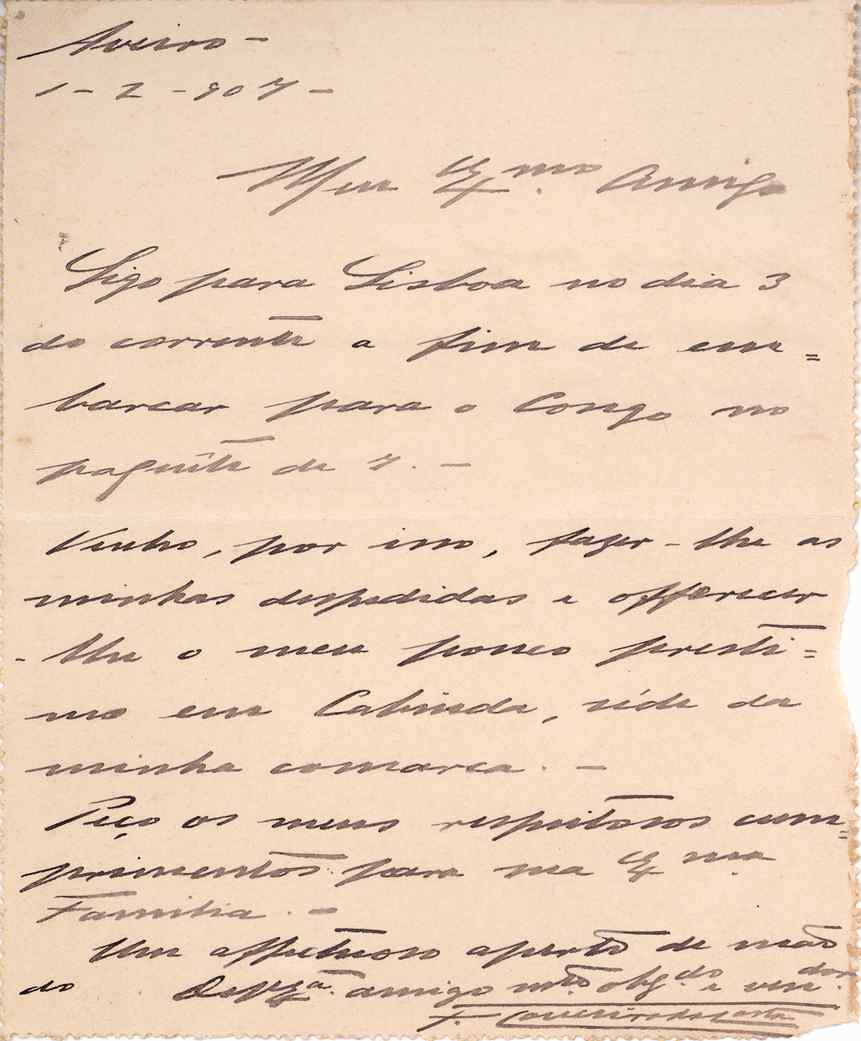 Aveiro -
1 - 2 - 907 -
Meu Ex.mo Amigo
Sigo para Lisboa no dia 3
do corrente a fim de em=
barcar para o Congo no
paquête de 7. -
Venho, por isso, fazer-lhe as
minhas despedidas e offerecer
-lhe o meu pouco presti=
mo em Cabinda, séde da
minha comarca. -
Peço os meus respeitosos cum=
primentos para sua Ex.ma
Familia. -
Um affectuoso aperto de mão
do De V. Ex.a amigo m.to obg.do e ven.dor